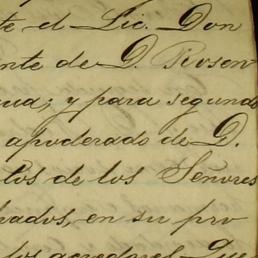 te el Lic. Don
nte de D. Rosen
gua; y para segundo
apoderado de D.
los de los Señores
hados, en su pro
los acredores Que